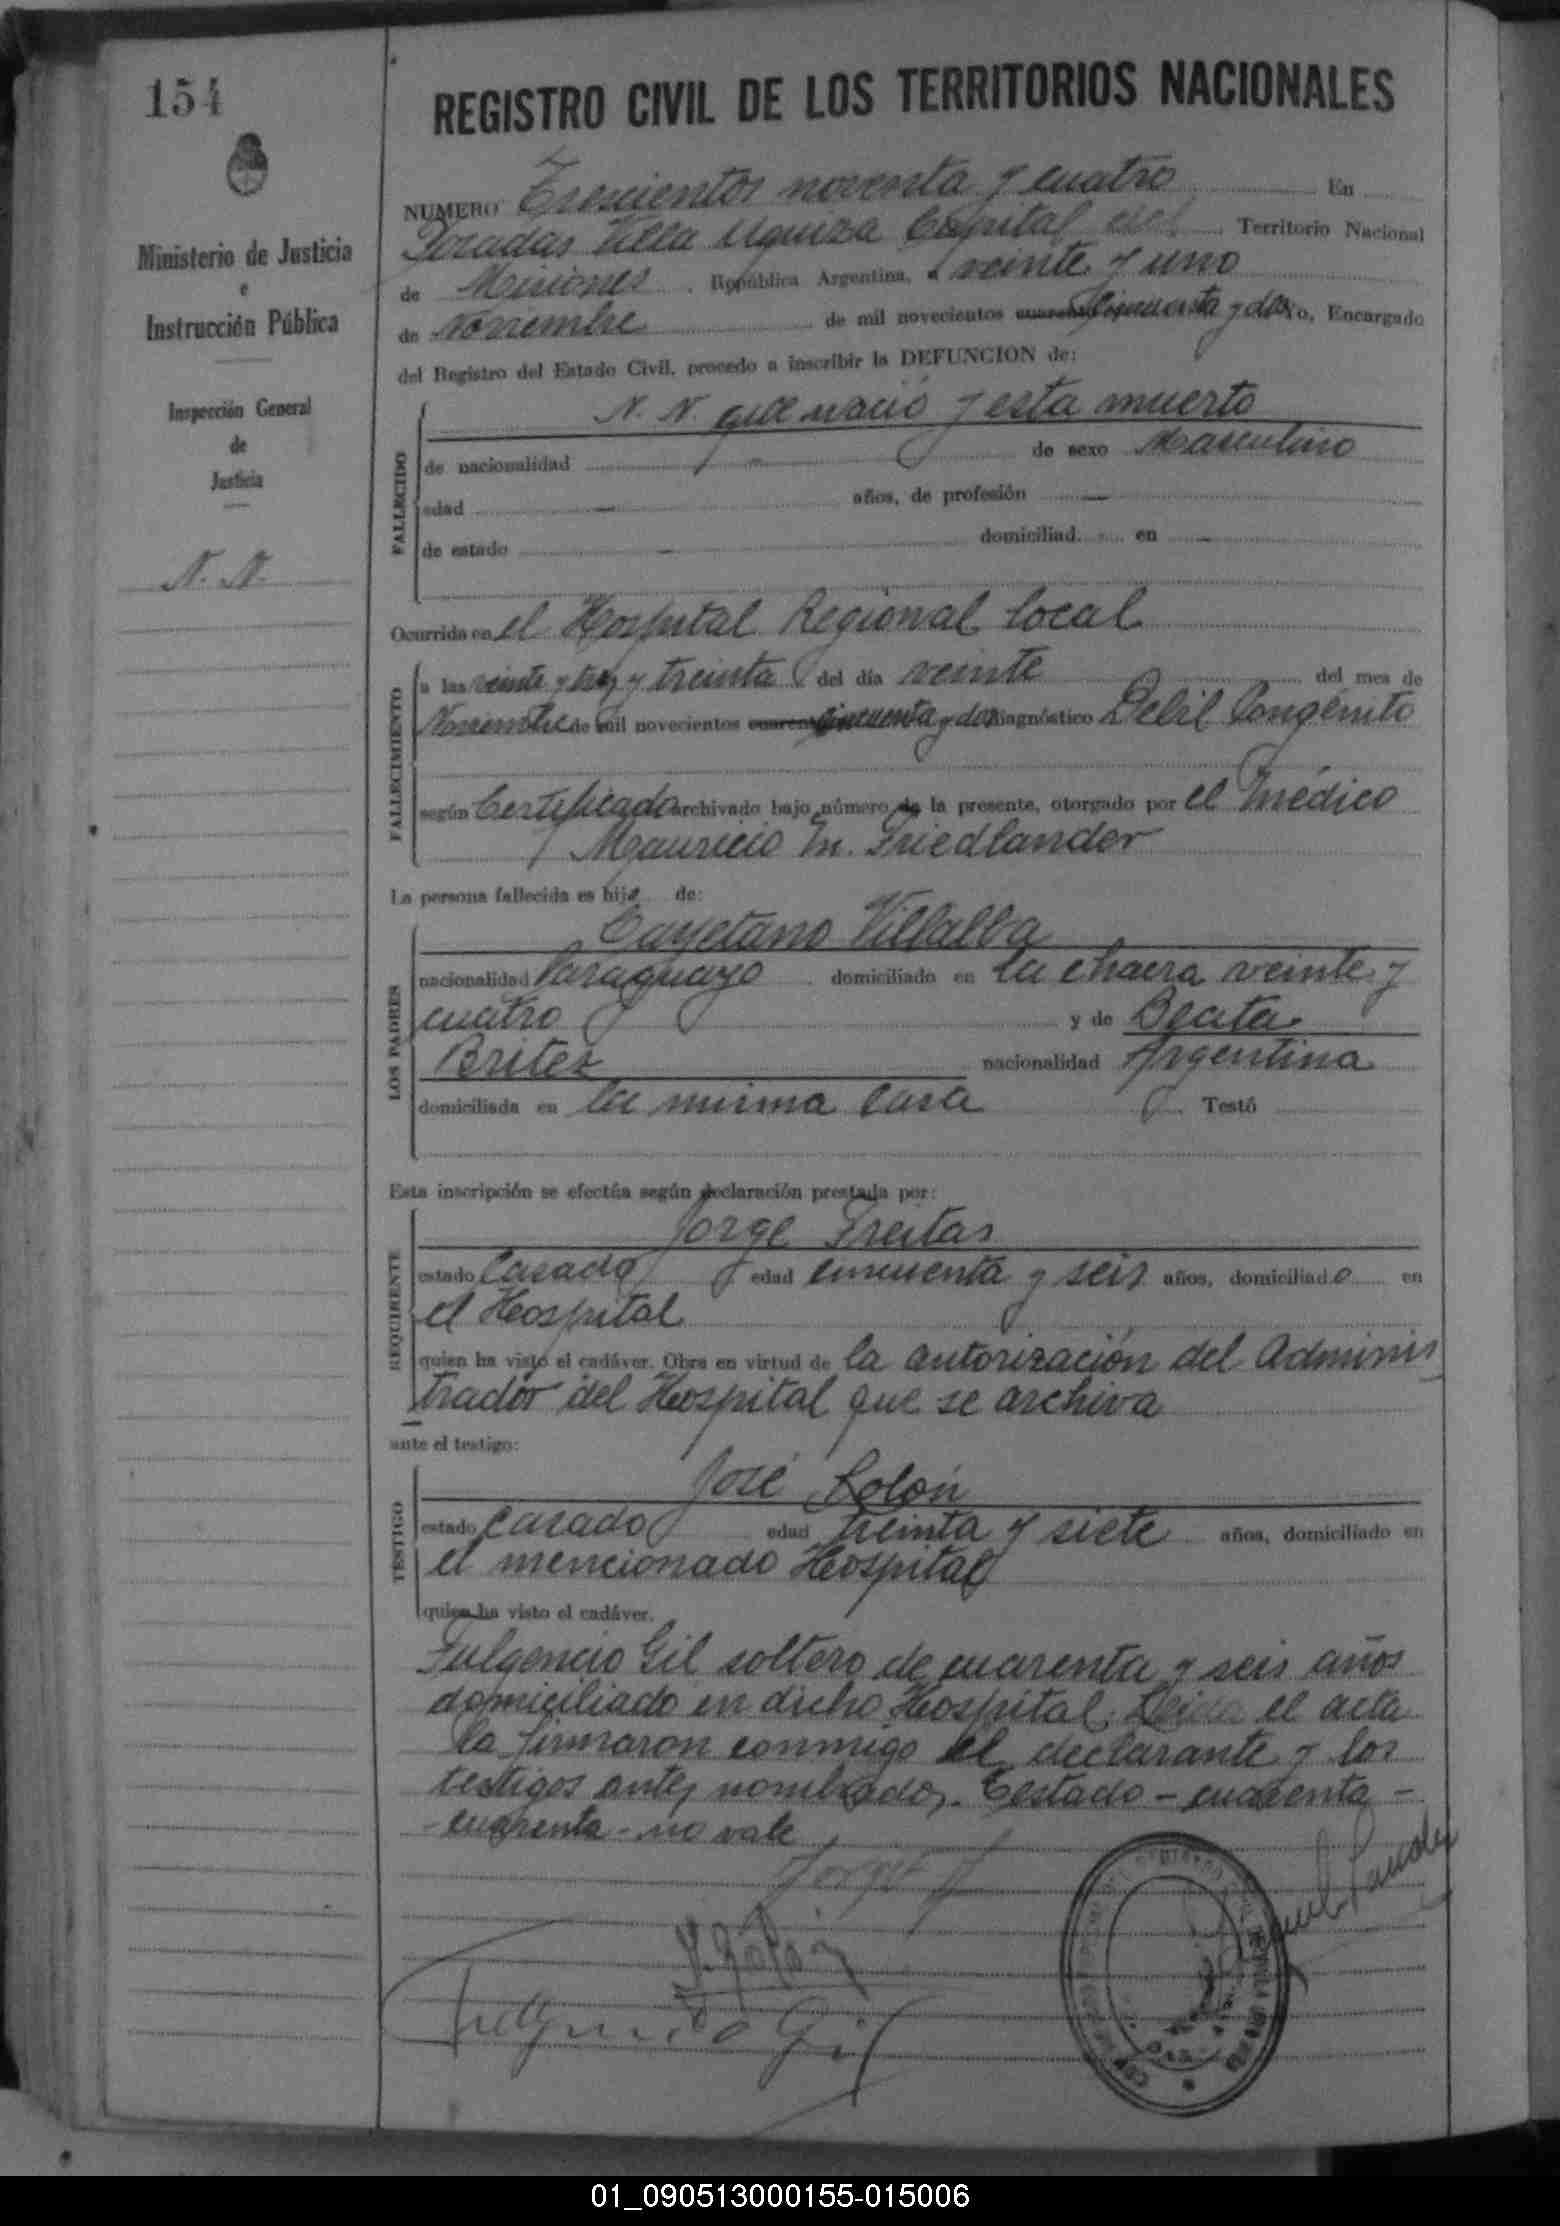 154
REGISTRO CIVIL DE LOS TERRITORIOS NACIONALES
Ministerio de Justicia
e
Instrucción Pública
Inspección General
de
Justicia
N. N.
NUMERO Trescientos noventa y cuatro En
Posadas Villa Uquiza Capital del Territorio Nacional
de Misiones, República Argentina, a veinte y uno
de Noviembre de mil novecientos cuarenta cincuenta y dos Yo, Encargado
del Registro del Estado Civil, procedo a inscribir la DEFUNCION de:
FALLECIDO
N. N. que nació y esta muerto
de nacionalidad — de sexo Masculino
edad — años, de profesión —
de estado — domiciliad en —
Ocurrida en el Hospital Regional local
FALLECIMIENTO
a las veinte y tres y treinta del día veinte del mes de
Noviembre de mil novecientos cuarenta cincuenta y dos diagnóstico Debil Congénito
según Certificado archivado bajo número de la presente, otorgado por el Médico
Mauricio M. Friedlander
La persona fallecida es hijo de:
LOS PADRES
Cayetano Villalba
nacionalidad Paraguayo domiciliado en la chacra veinte y
cuatro y de Beata
Britez nacionalidad Argentina
domiciliada en la misma casa Testó
Esta inscripción se efectúa según declaración prestada por:
REQUIRENTE
Jorge Freitas
estado Casado edad cincuenta y seis años, domiciliado en
el Hospital
quien ha visto el cadáver. Obra en virtud de la autorización del Adminis
trador del Hospital que se archiva
ante el testigo:
TESTIGO
José Rolón
estado casado edad treinta y siete años, domiciliado en
el mencionado Hospital
quien ha visto el cadáver.
Fulgencio Gil soltero de cuarenta y seis años
domiciliado en dicho Hospital. Leida el acta
la firmaron conmigo el declarante y los
testigos antes nombrados. Testado - cuarenta -
- cuarenta - no vale
Jorge F
J. Rolón
Fulgencio Gil
01_090513000155-015006